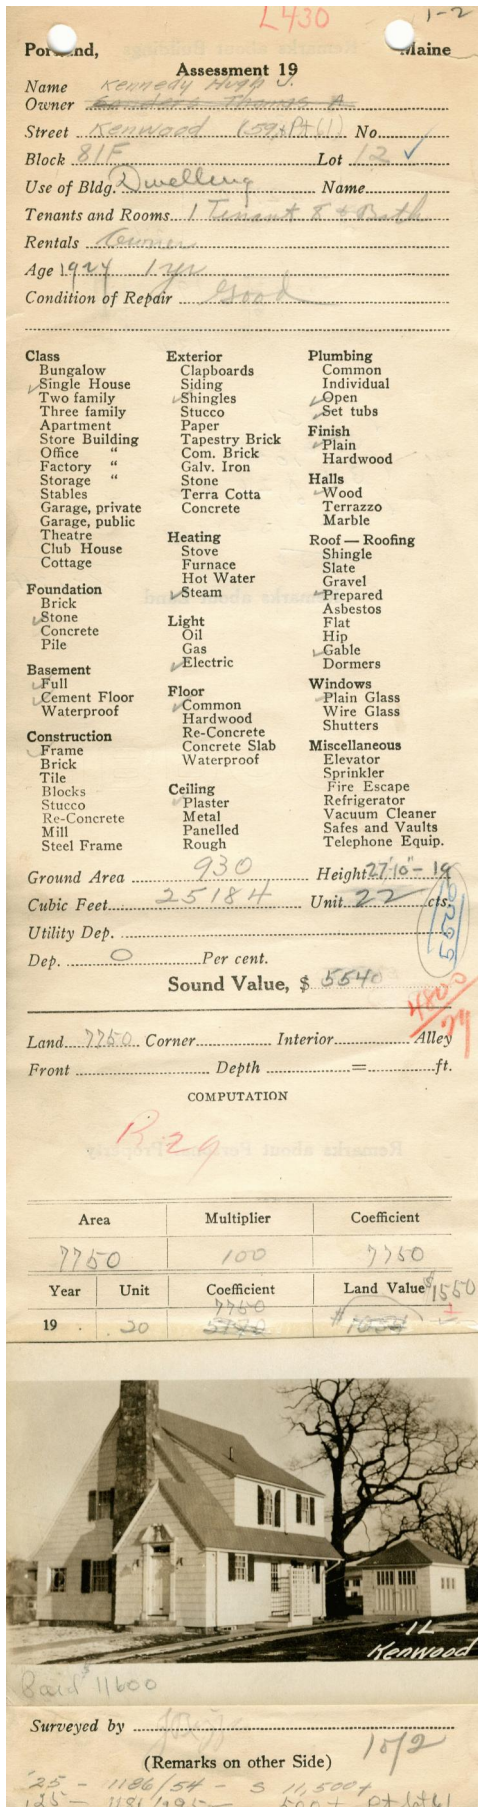 L430 1-2
Portland, Maine
Assessment 19
Name Kennedy Hugh J.
Owner Sanders Thomas A
Street Kenwood (59+Pt 61) No.
Block 81F Lot 12 ✓
Use of Bldg. Dwelling Name
Tenants and Rooms. 1 Tenant 8 + Bath
Rentals Owner
Age 1924 1 yr
Condition of Repair Good
Class
Bungalow
✓Single House
Two family
Three family
Apartment
Store Building
Office "
Factory "
Storage "
Stables
Garage, private
Garage, public
Theatre
Club House
Cottage
Foundation
Brick
✓Stone
Concrete
Pile
Basement
✓Full
✓Cement Floor
Waterproof
Construction
✓Frame
Brick
Tile
Blocks
Stucco
Re-Concrete
Mill
Steel Frame
Exterior
Clapboards
Siding
✓Shingles
Stucco
Paper
Tapestry Brick
Com. Brick
Galv. Iron
Stone
Terra Cotta
Concrete
Heating
Stove
Furnace
Hot Water
✓Steam
Light
Oil
Gas
✓Electric
Floor
✓Common
Hardwood
Re-Concrete
Concrete Slab
Waterproof
Ceiling
✓Plaster
Metal
Panelled
Rough
Plumbing
Common
Individual
✓Open
✓Set tubs
Finish
✓Plain
Hardwood
Halls
✓Wood
Terrazzo
Marble
Roof — Roofing
Shingle
Slate
Gravel
✓Prepared
Asbestos
Flat
Hip
✓Gable
Dormers
Windows
✓Plain Glass
Wire Glass
Shutters
Miscellaneous
Elevator
Sprinkler
Fire Escape
Refrigerator
Vacuum Cleaner
Safes and Vaults
Telephone Equip.
Ground Area 930 Height 27'10"-
Cubic Feet 25184 Unit 22 cts.
Utility Dep.
Dep. 0 Per cent.
Sound Value, $ 5540
4800/29
Land 7750 Corner Interior Alley
Front Depth = ft.
COMPUTATION
R 29
Area Multiplier Coefficient
7750 100 7750
Year Unit Coefficient Land Value $1550
7750
19 20
1L
Kenwood
Paid $11600
Surveyed by
(Remarks on other Side) 10/2
'25 - 1186/54 - $ 11,500+